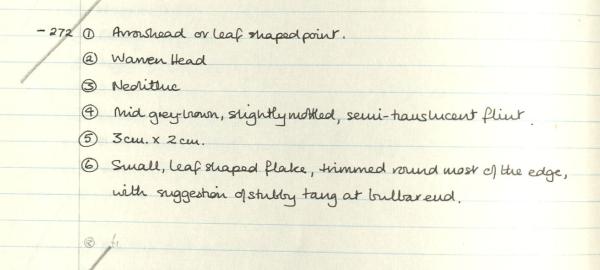 -272 ① Arrowhead or leaf shaped point.
② Warren Head
③ Neolithic
④ Mid grey-brown, slightly mottled, semi-translucent flint.
⑤ 3cm. x 2cm.
⑥ Small, leaf shaped flake, trimmed round most of the edge,
with suggestion of stubby tang at bulbar end.